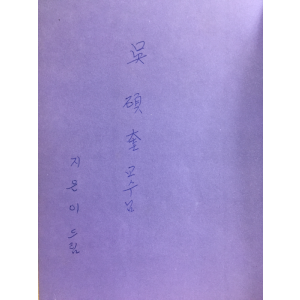 吳 碩 奎 교수님
지은이 드림